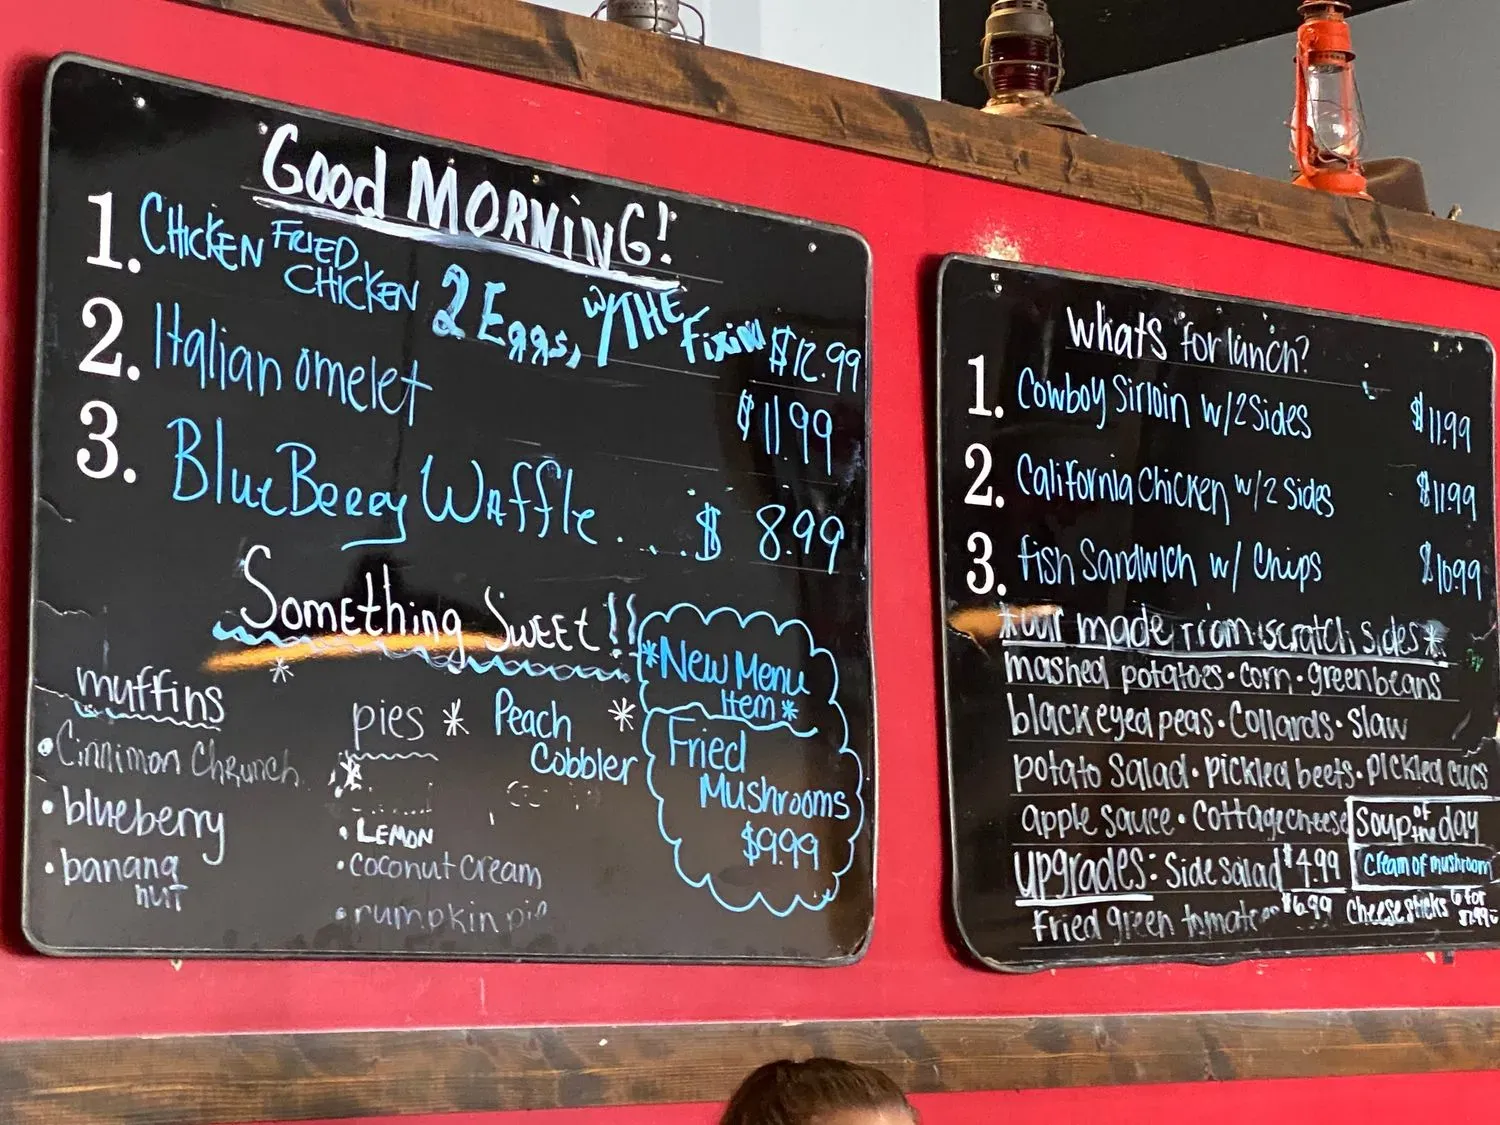 Good MORNING!
1. CHICKEN FRIED CHICKEN 2 Eggs, w/THE Fixin $12.99
2. Italian omelet $11.99
3. BlueBerry Waffle .... $ 8.99
Something Sweet!!
muffins
• Cinnimon Chrunch
• blueberry
• banana nut
pies
• LEMON
• coconut cream
• pumpkin pie
* Peach *
Cobbler
*New Menu
Item*
Fried
Mushrooms
$9.99
whats for lunch?
1. Cowboy Sirloin w/2 Sides $11.99
2. California Chicken w/2 Sides $11.99
3. fish Sandwich w/ Chips $10.99
*our made from scratch sides*
mashed potatoes • corn • greenbeans
blackeyed peas • Collards • Slaw
potato Salad • pickled beets • pickled cucs
apple sauce • Cottagecheese
Soup of the day
Cream of mushroom
upgrades: Side salad $4.99
Fried green tomatoes $6.99 Cheesesticks 6 for $7.99